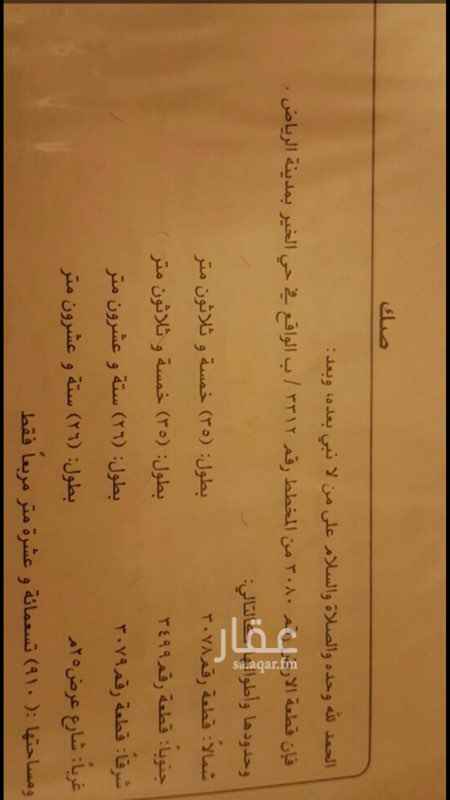 صك
الحمد لله وحده والصلاة والسلام على من لا نبي بعده، وبعد:
فإن قطعة الارض رقم ٣٠٨٠ من المخطط رقم ٣٣١٢ / ب الواقع في حي الخير بمدينة الرياض .
وحدودها وأطوالها كالتالي:
شمالاً: قطعة رقم ٣٠٧٨ بطول: (٣٥) خمسة و ثلاثون متر
جنوباً: قطعة رقم ٣٤٩٩ بطول: (٣٥) خمسة و ثلاثون متر
شرقاً: قطعة رقم ٣٠٧٩ بطول: (٢٦) ستة و عشرون متر
غرباً: شارع عرض ٢٥م بطول: (٢٦) ستة و عشرون متر
ومساحتها :( ٩١٠) تسعمائة و عشرة متر مربعاً فقط
عقار
sa.aqar.fm